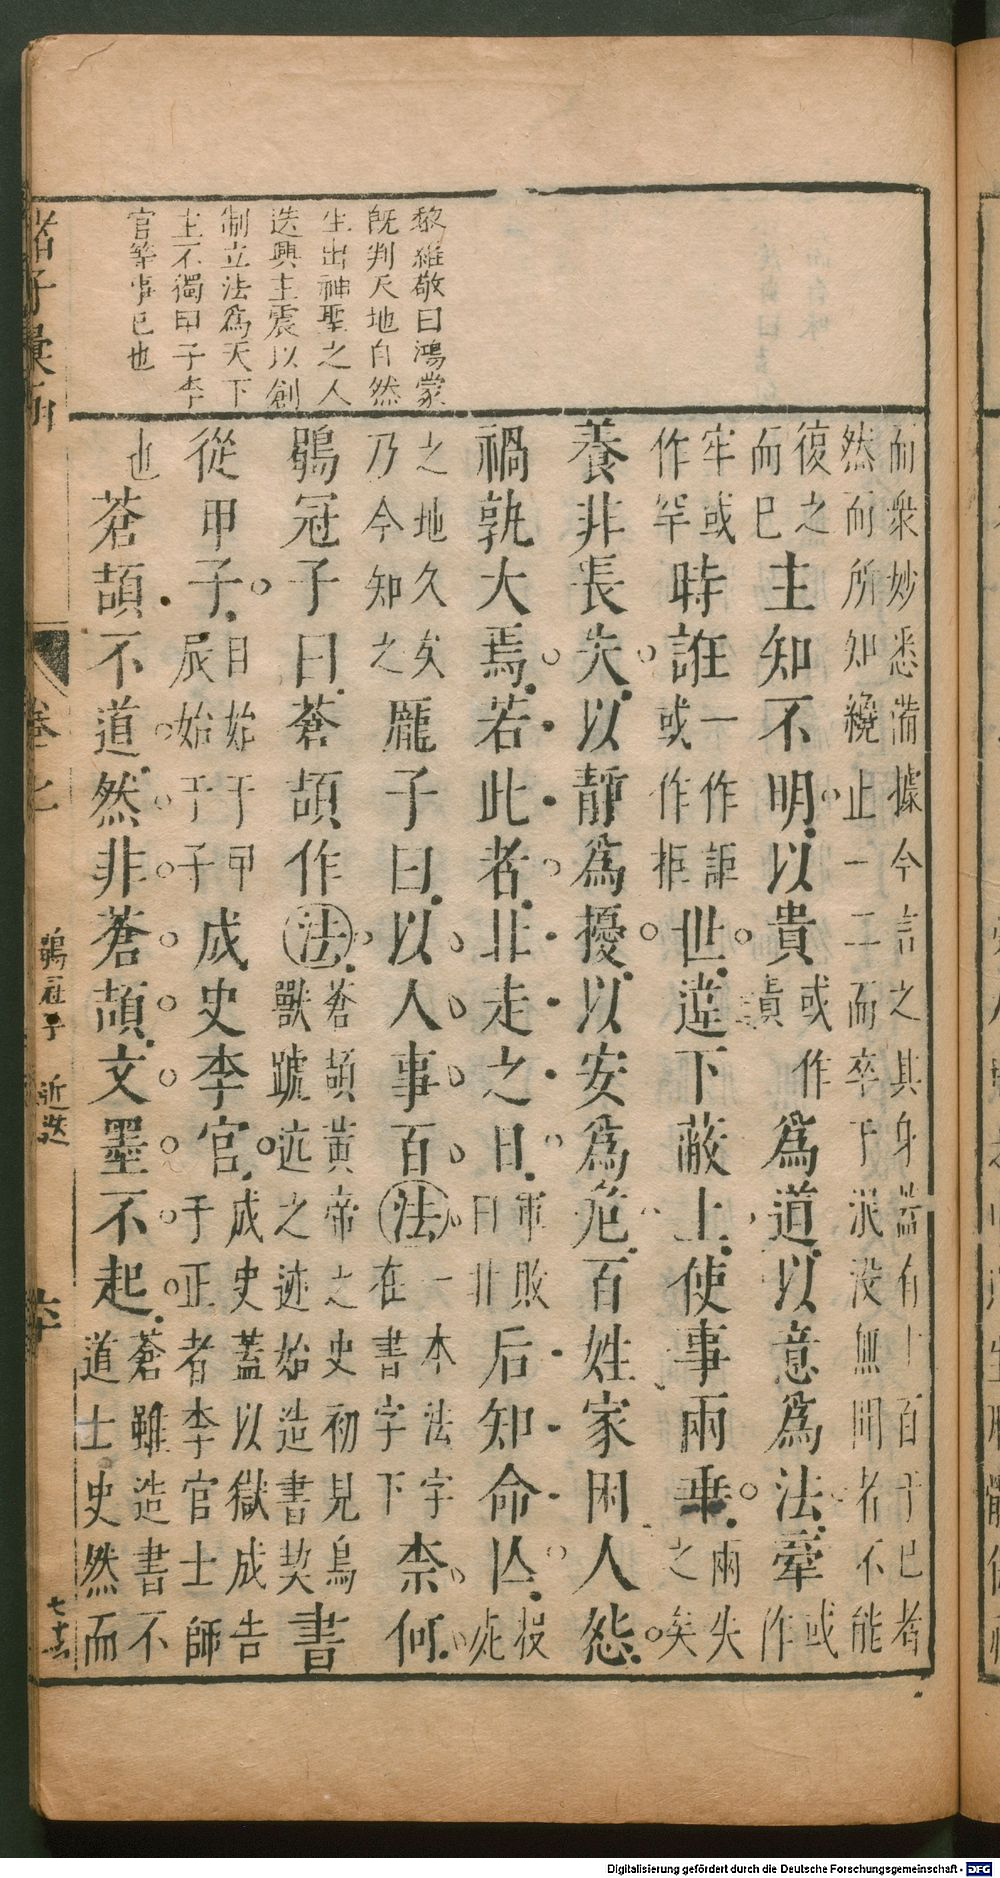 黎維敬曰鴻蒙
旣判天地自然
生出神聖之人
迭興主震以創
制立法爲天下
主不獨甲子李
官等事已也
而衆妙悉備據今言之其身蓋有十百于已者
然而所知纔止一二而卒于泯没無聞者不能
復之而已主知不明以貴或作責爲道以意爲法牽或作
牢或作罕時誑一作詎或作拒世遮下蔽上使事兩乖兩失之矣
養非長失以靜爲擾以安爲危百姓家困人怨
禍孰大焉若此者北走之日軍敗曰北后知命亡投死
之地久矣乃今知之龐子曰以人事百法一本法字在書字下柰何
鶡冠子曰蒼頡作法蒼頡黃帝之史初見鳥獸蹏迒之迹始造書契書
從甲子日始于甲辰始于子成史李官成史蓋以獄成告于正者李官士師
也蒼頡不道然非蒼頡文墨不起蒼雖造書不道士史然而
諸子彙函
卷七
鶡冠子 近迭
Digitalisierung gefördert durch die Deutsche Forschungsgemeinschaft - DFG